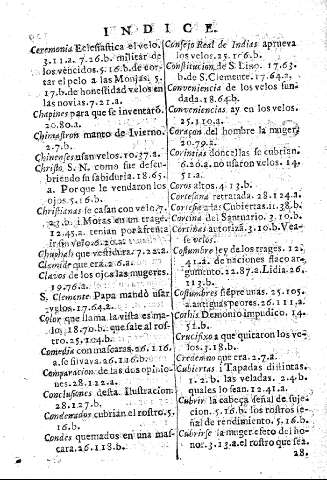 INDICE.
Ceremonia Eclesiastica el velo.
3.11.a. 7.26.b. militar de
los vencidos. 5.16.b. de cor-
tar el pelo a las Monjas. 5.
17.b. de honestidad velos en
las novias. 7.21.a.
Chapines para que se inventarõ.
20.80.a.
Chimastron manto de Ivierno.
2.7.b.
Chinenses usan velos. 10.37.a.
Christo, S. N. como fue descu-
briendo su sabiduria. 18.65.
a. Porque le vendaron los
ojos. 5.16.b.
Christianas se casan con velo. 7.
23.b. i Moras en un trage.
12.45.a. tenian por afrenta
ir sin velo. 6.20.a.
Chuphah que vestidura. 7.22.a.
Clamide que era. 2.6.a.
Clavos de los ojos las mugeres.
19.76.a.
S. Clemente Papa mandò usar
velos. 17.64.a.
Color que llama la vista es ma-
lo. 18.70.b. que sale al ros-
tro. 25.104.b.
Comedia con mascaras. 26.116
a. se sirvava. 26.116.b.
Comparacion de las dos opinio-
nes. 28.122.a.
Conclusiones desta Ilustracion.
28.127.b.
Condenados cubrian el rostro. 5.
16.b.
Condes quemados en una mas-
cara. 26.118.b.
Consejo Real de Indias aprueva
los velos. 25.106.b.
Constitucion de S. Lino. 17.63.
b. de S. Clemente. 17.64.a.
Conveniencia de los velos fun-
dada. 18.64.b.
Conveniencias ay en los velos.
25.110.a.
Coraçon del hombre la muger.
20.79.a.
Corintias doncellas se cubrian.
6.20.a. no usaron velos. 14.
51.a.
Coros altos. 4.13.b.
Cortesana retratada. 28.124.a.
Cortesia a las Cubiertas. 11.38.b.
Cortina del Santuario. 3.10.b.
Cortinas autoriza. 3.10.b. Vea-
se velos.
Costumbre ley de los trages. 12.
41.a. de naciones flaco ar-
gumento. 22.87.a. Lidia. 26.
113.b.
Costumbres siempre unas. 25.105.
a. antiguas peores. 26.111.a.
Cothis Demonio impudico. 14.
51.b.
Crucifixo a que quitaron los ve-
los. 3.18.b.
Credemno que era. 2.7.a.
Cubiertas i Tapadas distintas.
1.2.b. las veladas. 2.4.b.
quales lo sean. 12.41.a.
Cubrir la cabeça señal de suje-
cion. 5.16.b. los rostros se-
ñal de rendimiento. 5.16.b.
Cubrirse la muger efeto del ho-
nor. 3.13.a. el rostro que sea
28.